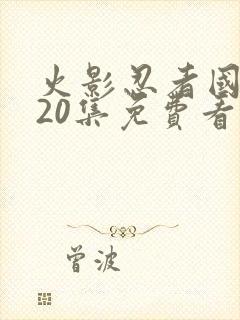 火影忍者國
20集免費看
曾波